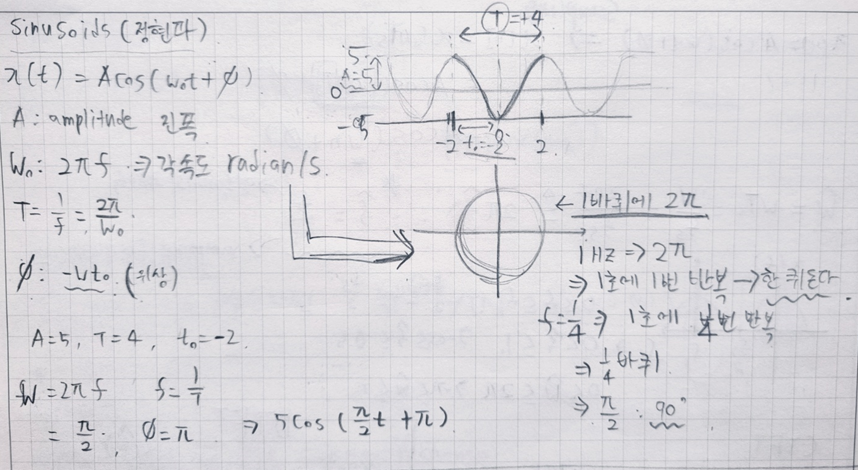 Sinusoids (정현파)
x(t) = Acos(w₀t + ϕ)
A : amplitude 진폭
W₀ : 2πf ⇒ 각속도 radian/s.
T = 1/f = 2π/W₀
ϕ : -wt₀ (위상)
A=5, T=4, t₀=-2
W = 2πf f = 1/T
= π/2 , ϕ=π ⇒ 5cos(π/2 t + π)
T=4
5
A=5
0
-5
-2
2
← 1바퀴에 2π
1Hz ⇒ 2π
⇒ 1초에 1번 반복 → 한 퀴돈다.
f=1/4 ⇒ 1초에 1/4번 반복
⇒ 1/4 바퀴
⇒ π/2 : 90°